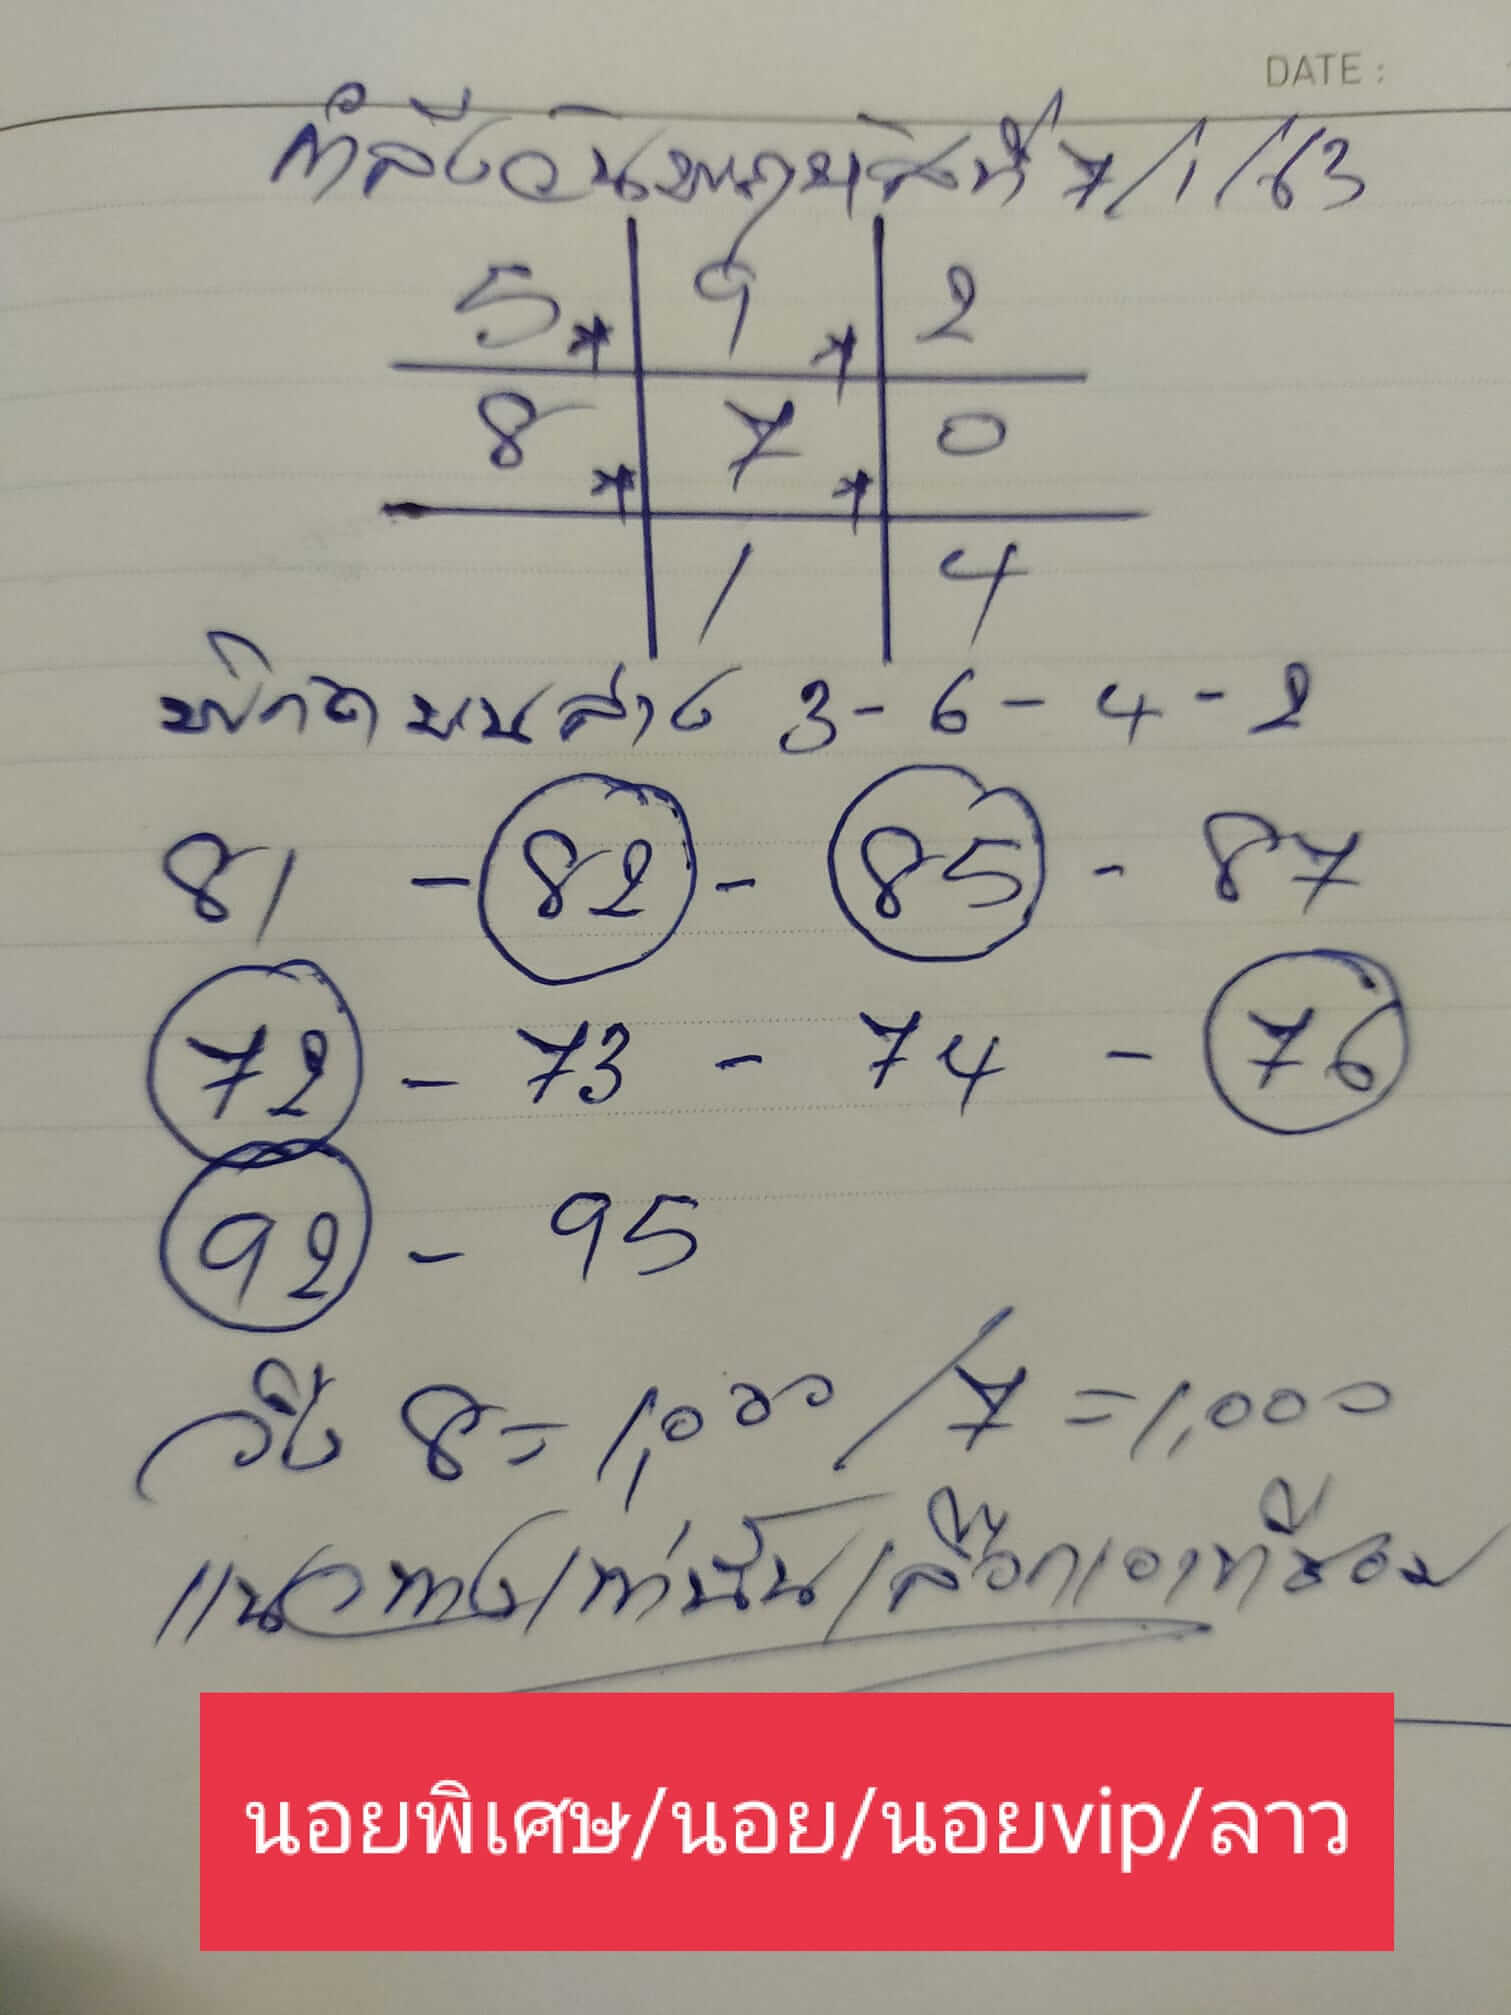 DATE :
กำลังวันพฤหัสที่ 7/1/63
5* 9* 2
8* 7* 0
1 4
พิกัด บนล่าง 3 - 6 - 4 - 2
81 - 82 - 85 - 87
72 - 73 - 74 - 76
92 - 95
วิ่ง 8 = 1,000 / 7 = 1,000
แนวทางเท่านั้นเลือกเอาที่ชอบ
นอยพิเศษ/นอย/นอยvip/ลาว